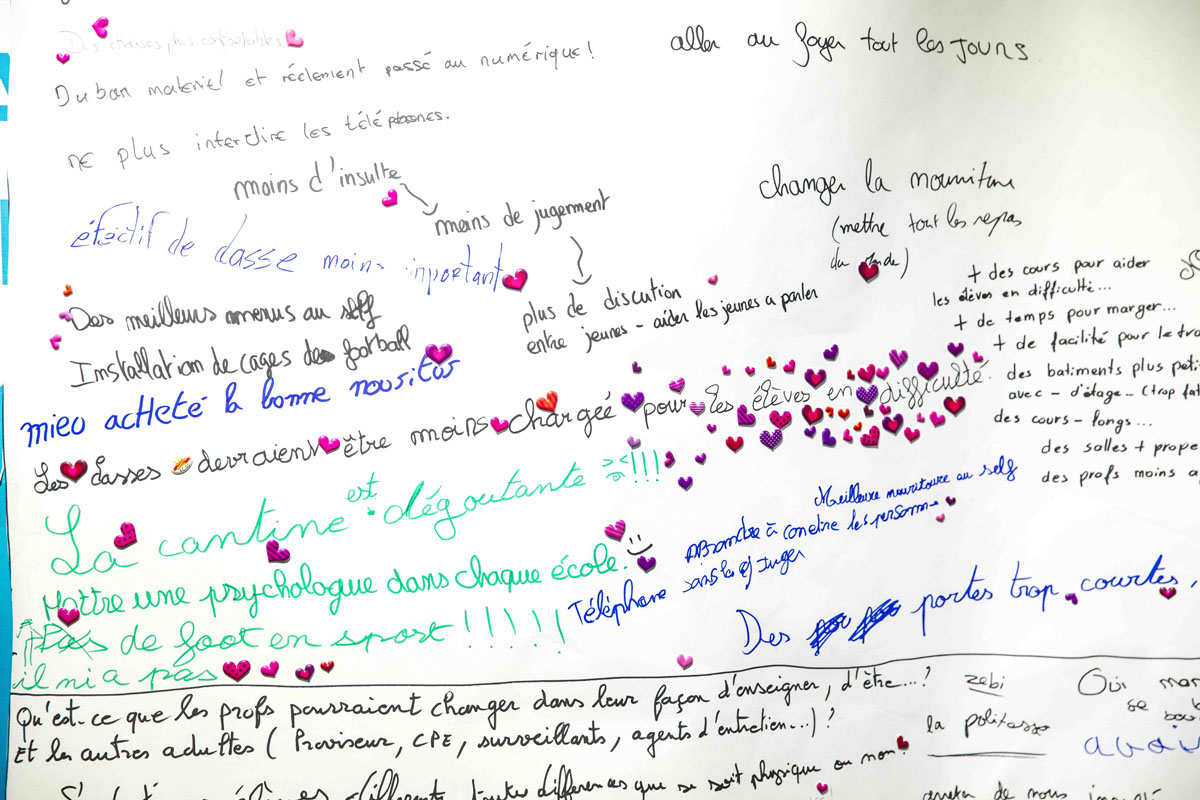 Des chaises plus confortables
Du bon materiel et réelement passé au numérique !
ne plus interdire les téléphones.
aller au foyer tout les jours
moins d'insulte
moins de jugement
plus de discution
entre jeunes - aider les jeunes a parler
éfectif de classe moins important
changer la nourriture
(mettre tout les repas
du monde)
Des meilleurs menus au self
Installation de cages de football
mieu acheté la bonne nouritur
+ des cours pour aider
les élèves en difficulté...
+ de temps pour marger...
+ de facilité pour le tra
des batiments plus peti
avec - d'étage - (trop fat
des cours - longs...
des salles + prope
des profs moins a
Les classes devraient être moins chargée pour les élèves en difficulté.
La cantine est dégoutante !!!
Mettre une psychologue dans chaque école.
Pas de foot en sport !!!!!
il ni a pas
Meilleure nourritoure au self
Apprendre à conetire les personne
sans les juger
Téléphone
Des portes trop courtes,
Qu'est-ce que les profs pourraient changer dans leur façon d'enseigner, d'être...?
Et les autres adultes (Proviseur, CPE, surveillants, agents d'entretien...) ?
zebi
la politesse
Oui mar
se
avai
différents, toutes différences que se soit physique ou non
arreter de nous